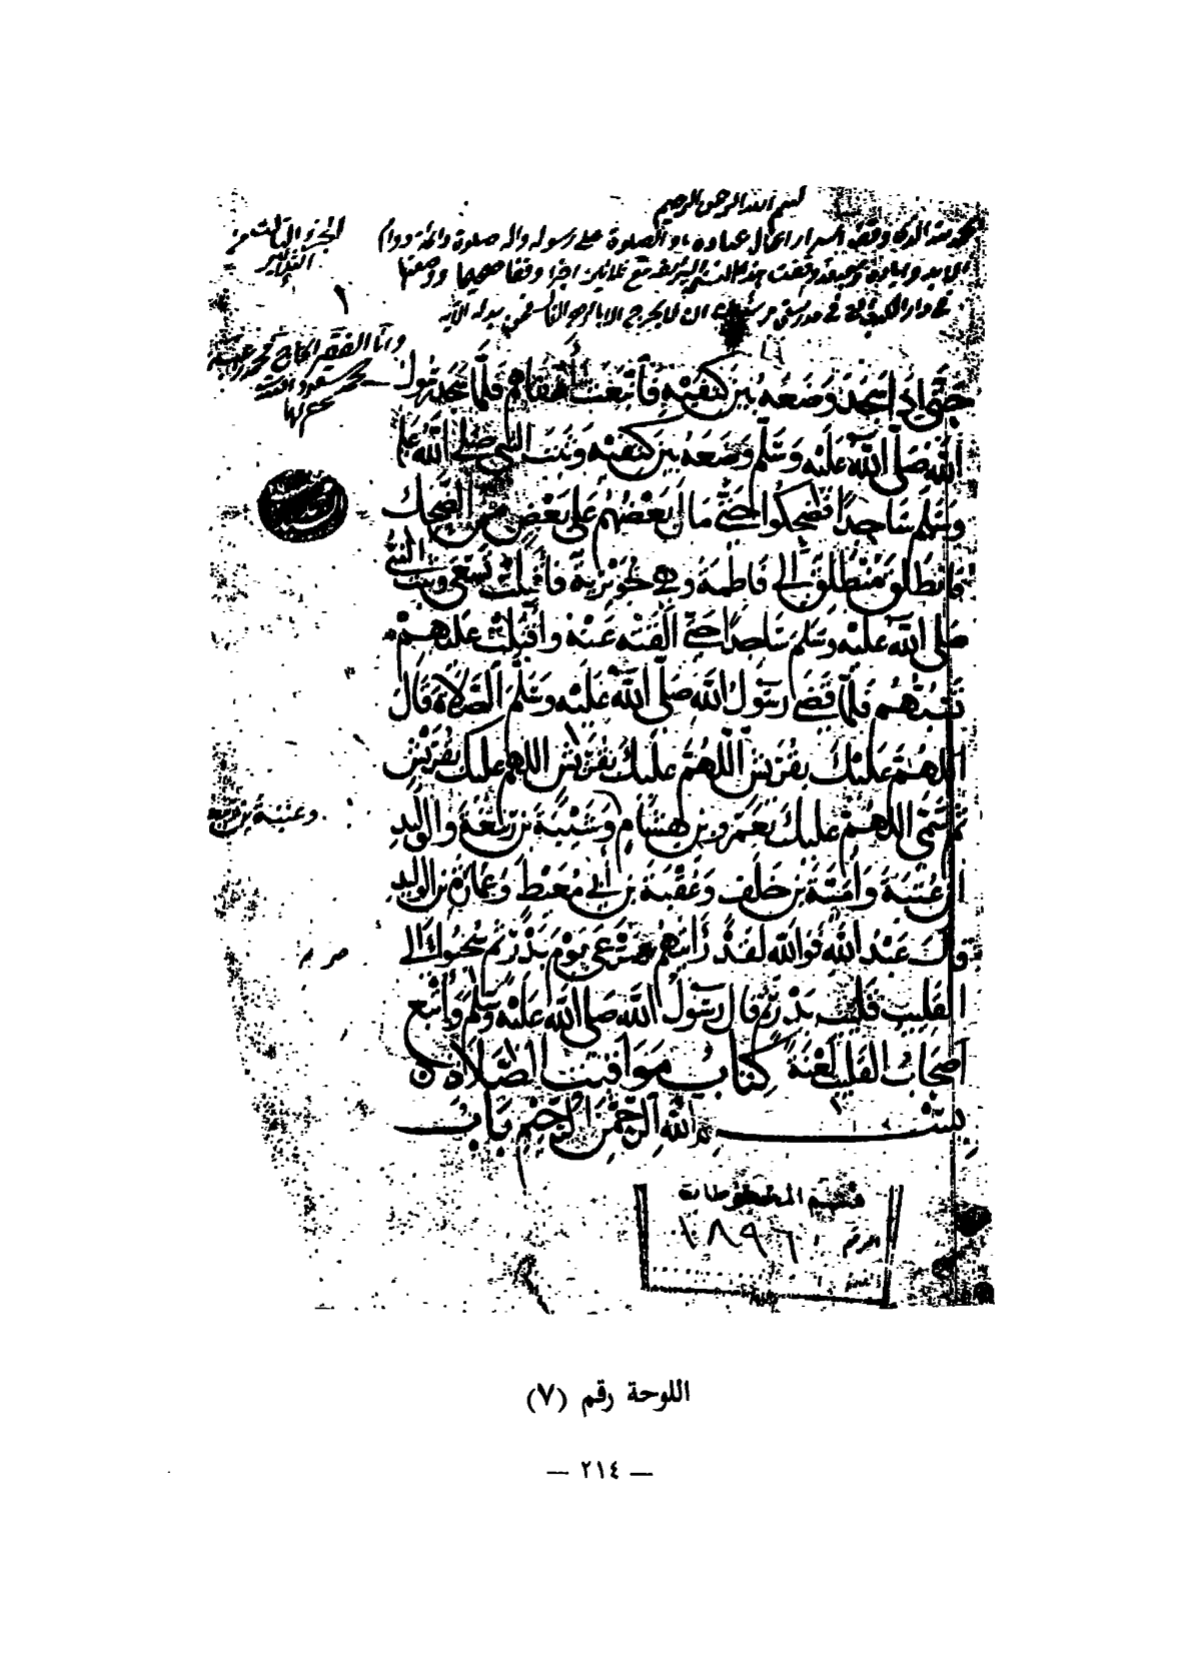 بسم الله الرحمن الرحيم
الحمد لله الذي وقف اسرار عباده والصلوة على رسوله واله صلوة دائمة ودوام
هذا مع ثلاثين اجزا وقفا صحيحا ووضعها
في دار ان لا يخرج الا
الجزء الثالث من
الثلاثين
١
وانا الفقير الحاج محمد
حتى اذا سجد وضعه بين كتفيه فانبعث اشقاهم فلما سجد رسول
الله صلى الله عليه وسلم وضعه بين كتفيه وثبت النبي صلى الله عليه
وسلم ساجدا فضحكوا حتى مال بعضهم على بعض من الضحك
فانطلق منطلق الى فاطمة وهي جويرية فاقبلت تسعى وثبت النبي
صلى الله عليه وسلم ساجدا حتى القته عنه واقبلت عليهم
تسبهم فلما قضى رسول الله صلى الله عليه وسلم الصلاة قال
اللهم عليك بقريش اللهم عليك بقريش اللهم عليك بقريش
ثم سمى اللهم عليك بعمرو بن هشام وشيبة بن ربيعة والوليد
وعتبة بن
بن عتبة وامية بن خلف وعقبة بن ابي معيط وعمارة بن الوليد
قال عبد الله فوالله لقد رايتهم صرعى يوم بدر ثم سحبوا الى
القليب قليب بدر ثم قال رسول الله صلى الله عليه وسلم واتبع
اصحاب القليب لعنة كتاب مواقيت الصلاة
بسم الله الرحمن الرحيم باب
قسم المخطوطات
الرقم ١٨٩٦
اللوحة رقم (٧)
— ٢١٤ —